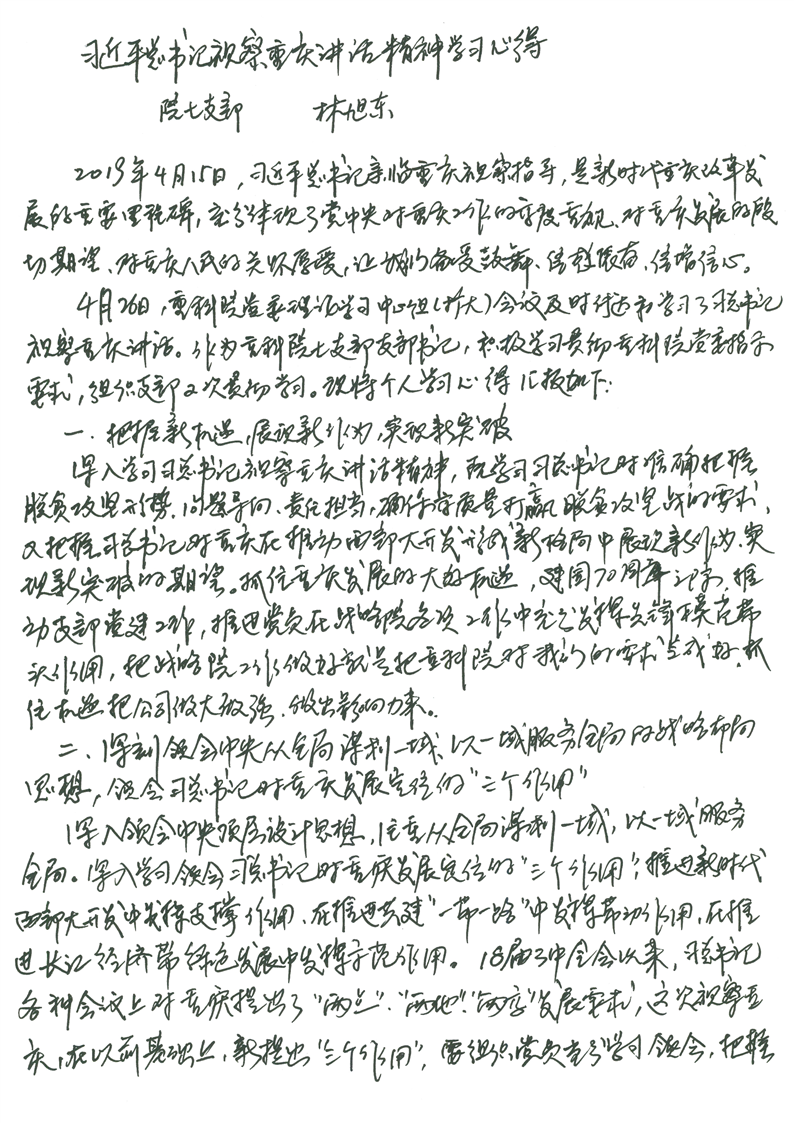 习近平总书记视察重庆讲话精神学习心得
院七支部 林旭东
2019年4月15日,习近平总书记亲临重庆视察指导,是新时代重庆改革发
展的重要里程碑,充分体现了党中央对重庆工作的高度重视、对重庆发展的殷
切期望、对重庆人民的关怀厚爱,让我们备受鼓舞、倍增信心。
4月26日,重科院党委理论学习中心组(扩大)会议及时传达和学习了习总书记
视察重庆讲话。作为重科院七支部支部书记,积极学习贯彻重科院党委指示
要求,组织支部2次贯彻学习。现将个人学习心得汇报如下:
一、把握新机遇,展现新作为,实现新突破
深入学习习总书记视察重庆讲话精神,既学习习总书记对准确把握
脱贫攻坚形势、问题导向、责任担当,确保高质量打赢脱贫攻坚战的要求,
又把握习总书记对重庆在推动西部大开发形成新格局中展现新作为、实
现新突破的期望。抓住重庆发展的大好机遇,建国70周年之际,推
动支部党建工作,推进党员在战略院各项工作中充分发挥先锋模范带
头作用,把战略院工作做好就是把重科院对我们的要求完成好,抓
住机遇把公司做大做强、做出影响力来。
二、深刻领会中央从全局谋划一域、以一域服务全局的战略布局
思想,领会习总书记对重庆发展定位的“三个作用”
深入领会中央顶层设计思想,注重从全局谋划一域,以一域服务
全局。深入学习领会习总书记对重庆发展定位的“三个作用”,推进新时代
西部大开发中发挥支撑作用、在推进共建“一带一路”中发挥带动作用,在推
进长江经济带绿色发展中发挥示范作用。18届3中全会以来,习总书记
各种会议上对重庆提出了“两点”、“两地”、“两高”发展要求,这次视察重
庆,在以前基础上,新提出“三个作用”,要组织党员充分学习领会,把握